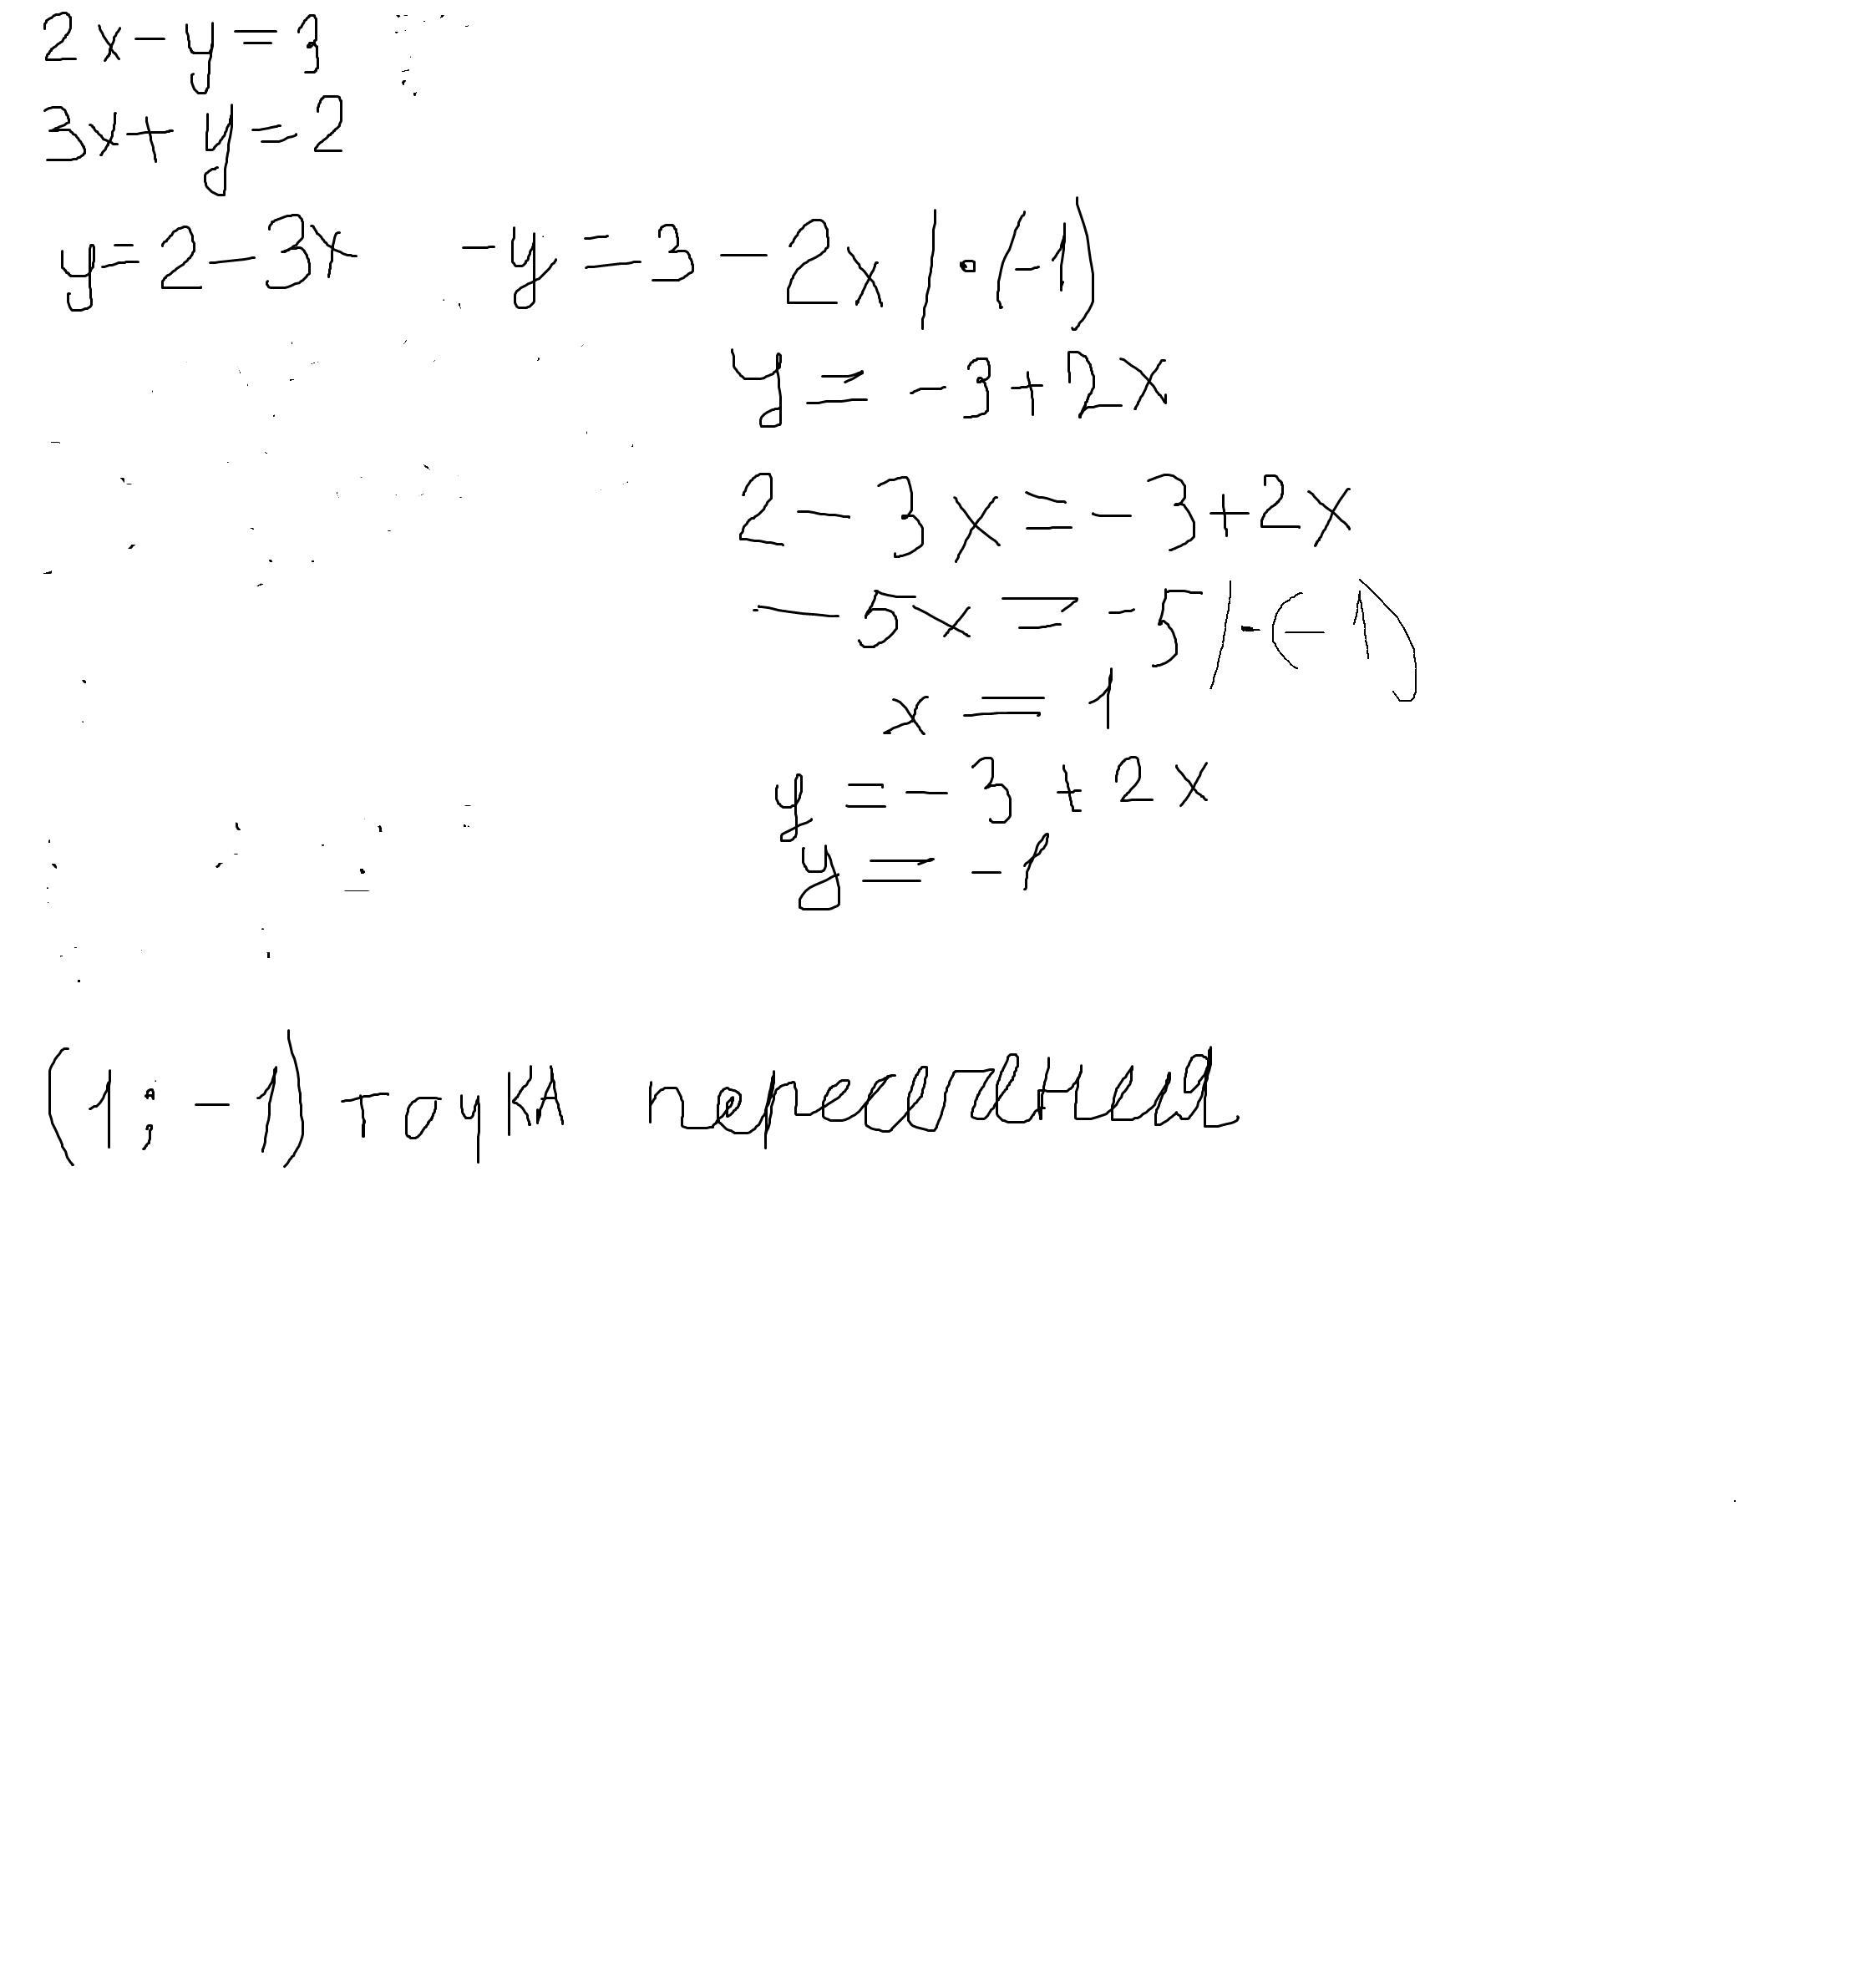 2x-y=3
3x+y=2
y=2-3x -y=3-2x|·(-1)
y=-3+2x
2-3x=-3+2x
-5x=-5|·(-1)
x=1
y=-3+2x
y=-1
(1;-1) точка